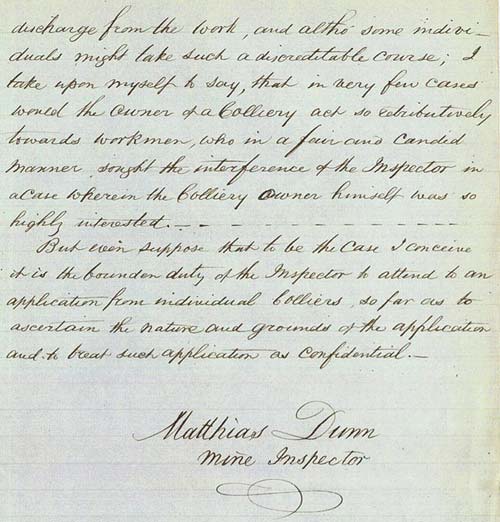 discharge from the work, and altho some indivi-
duals might take such a discreditable course; I
take upon myself to say, that in very few cases
would the Owner of a Colliery act so retributively
towards workmen, who in a fair and candid
manner, sought the interference of the Inspector in
a case wherein the Colliery Owner himself was so
highly interested. — — — — — — — — — —
But even suppose that to be the Case I conceive
it is the bounden duty of the Inspector to attend to an
application from individual Colliers, so far as to
ascertain the nature and grounds of the application
and to treat such application as confidential. —
Matthias Dunn
Mine Inspector